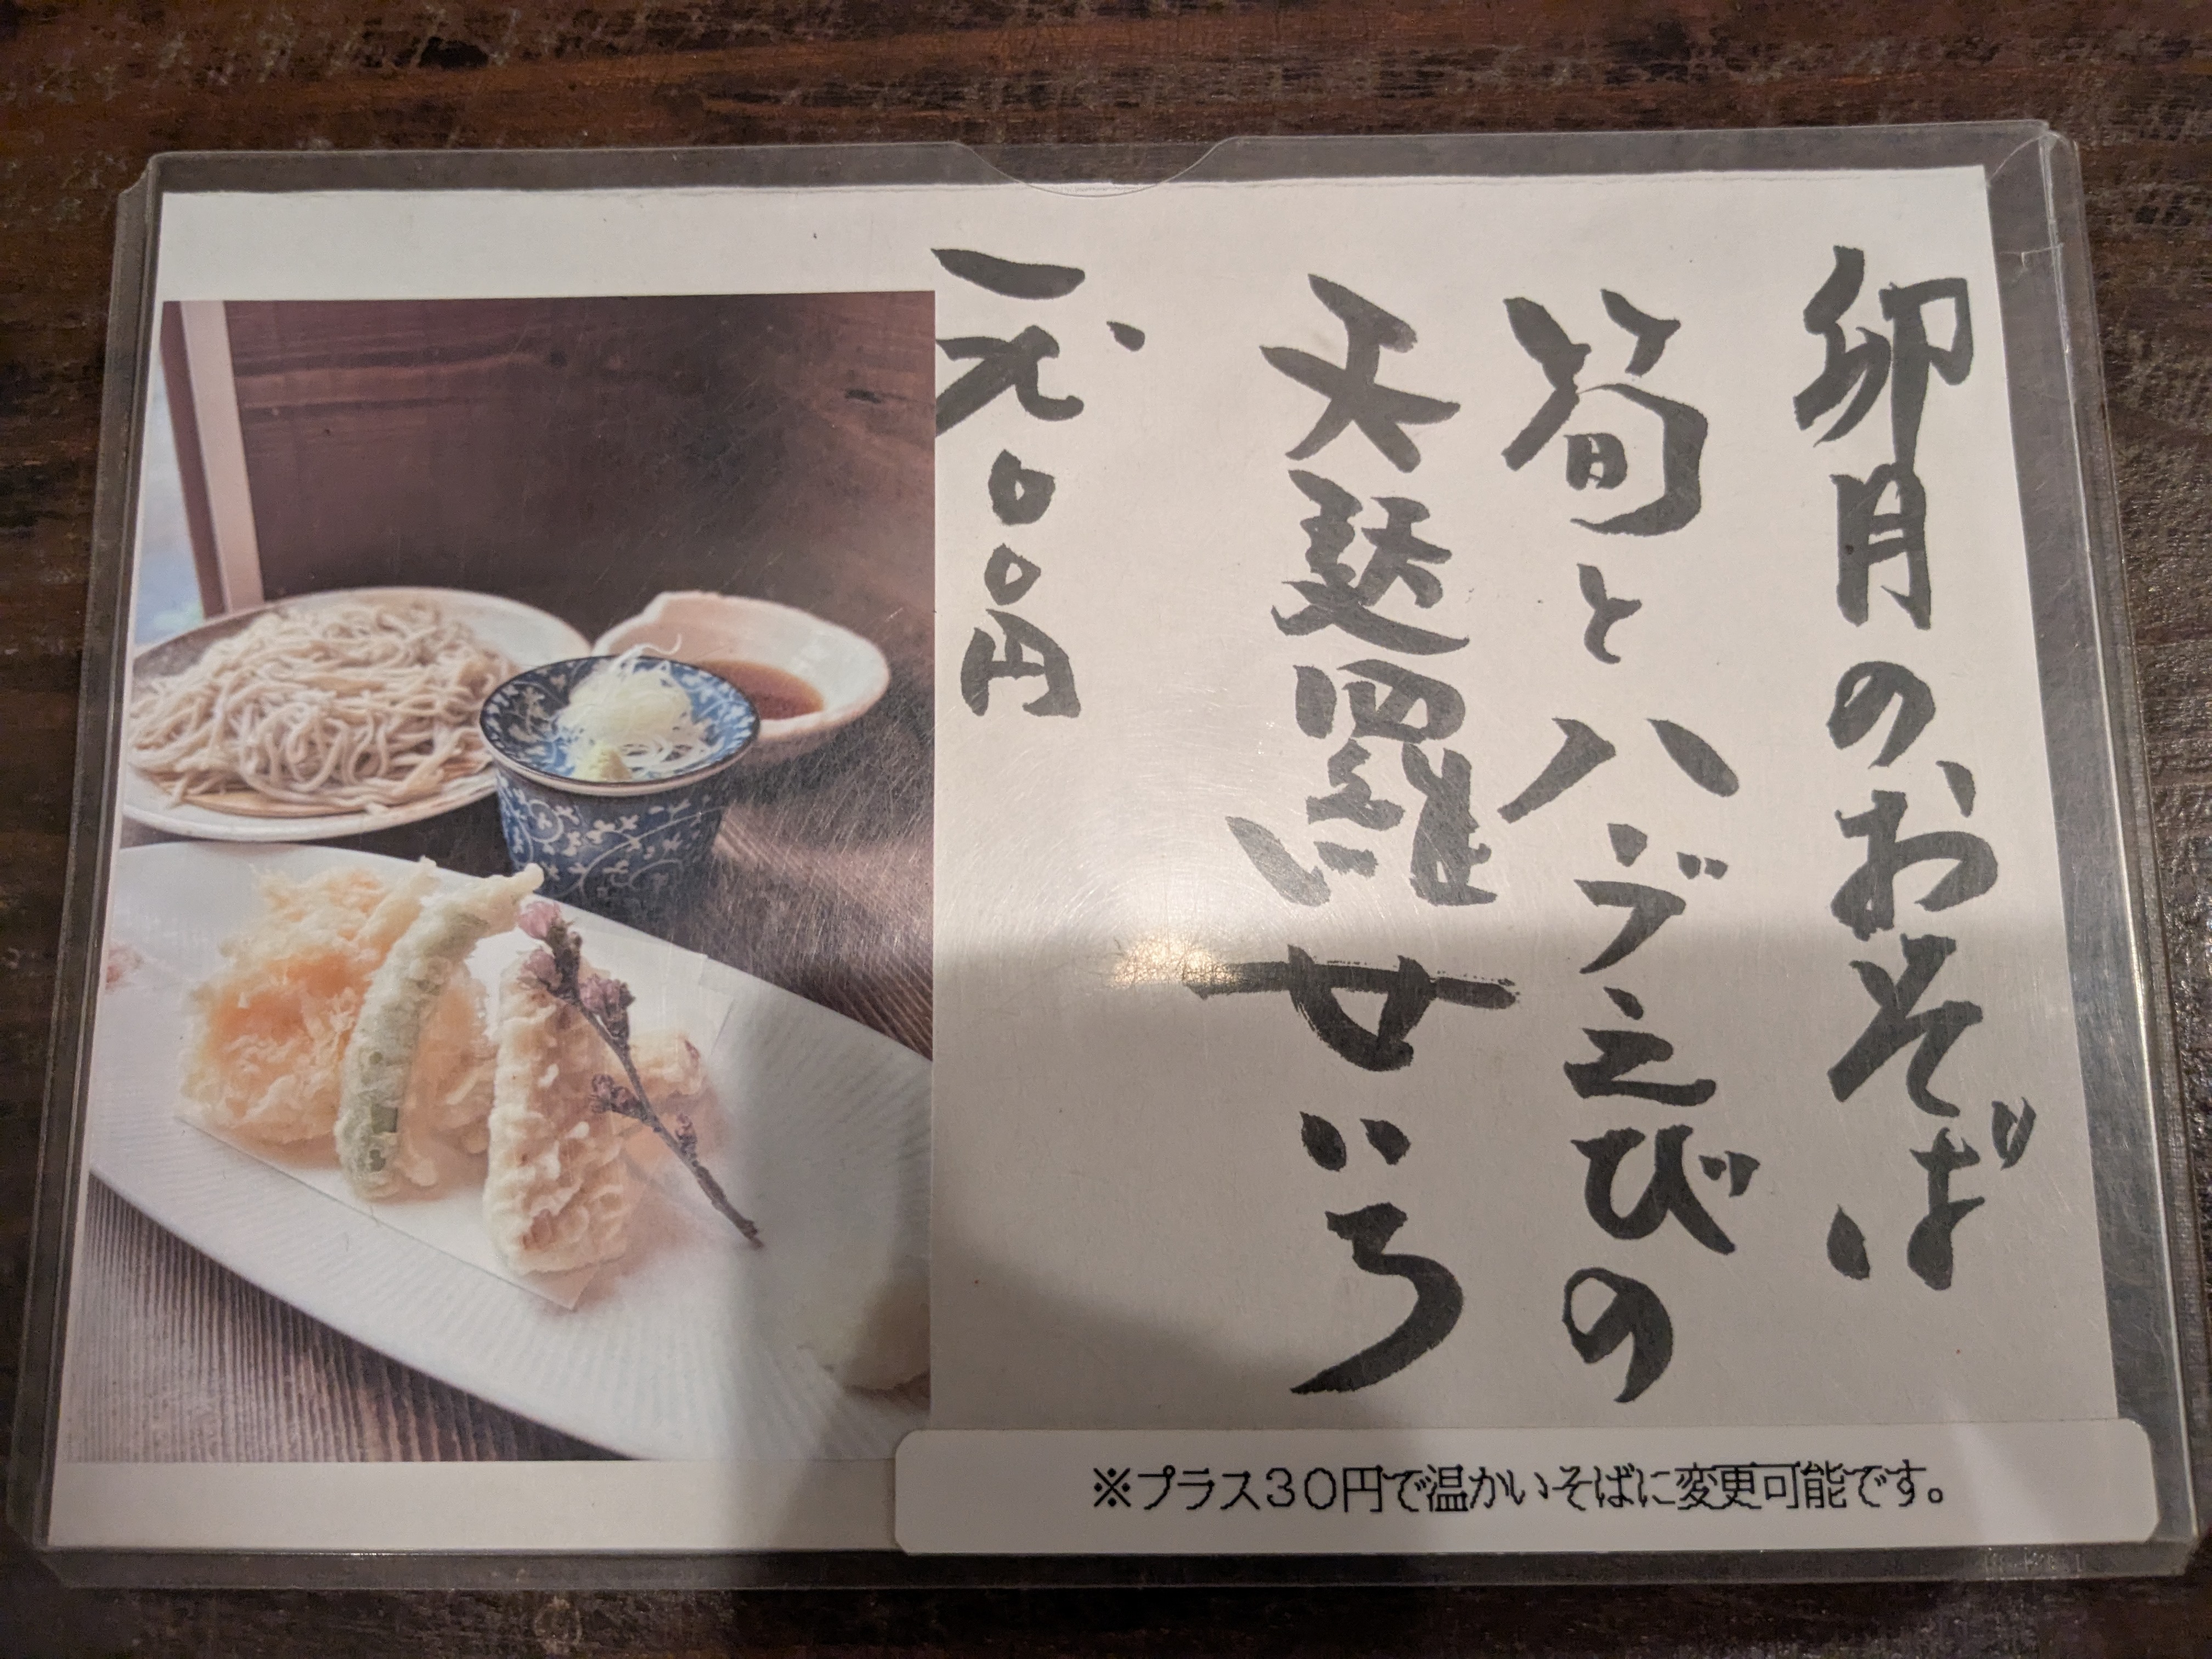 卯月のおそば
筍とハブえびの
天麩羅せいろ
一、九〇〇円
※プラス３０円で温かいそばに変更可能です。